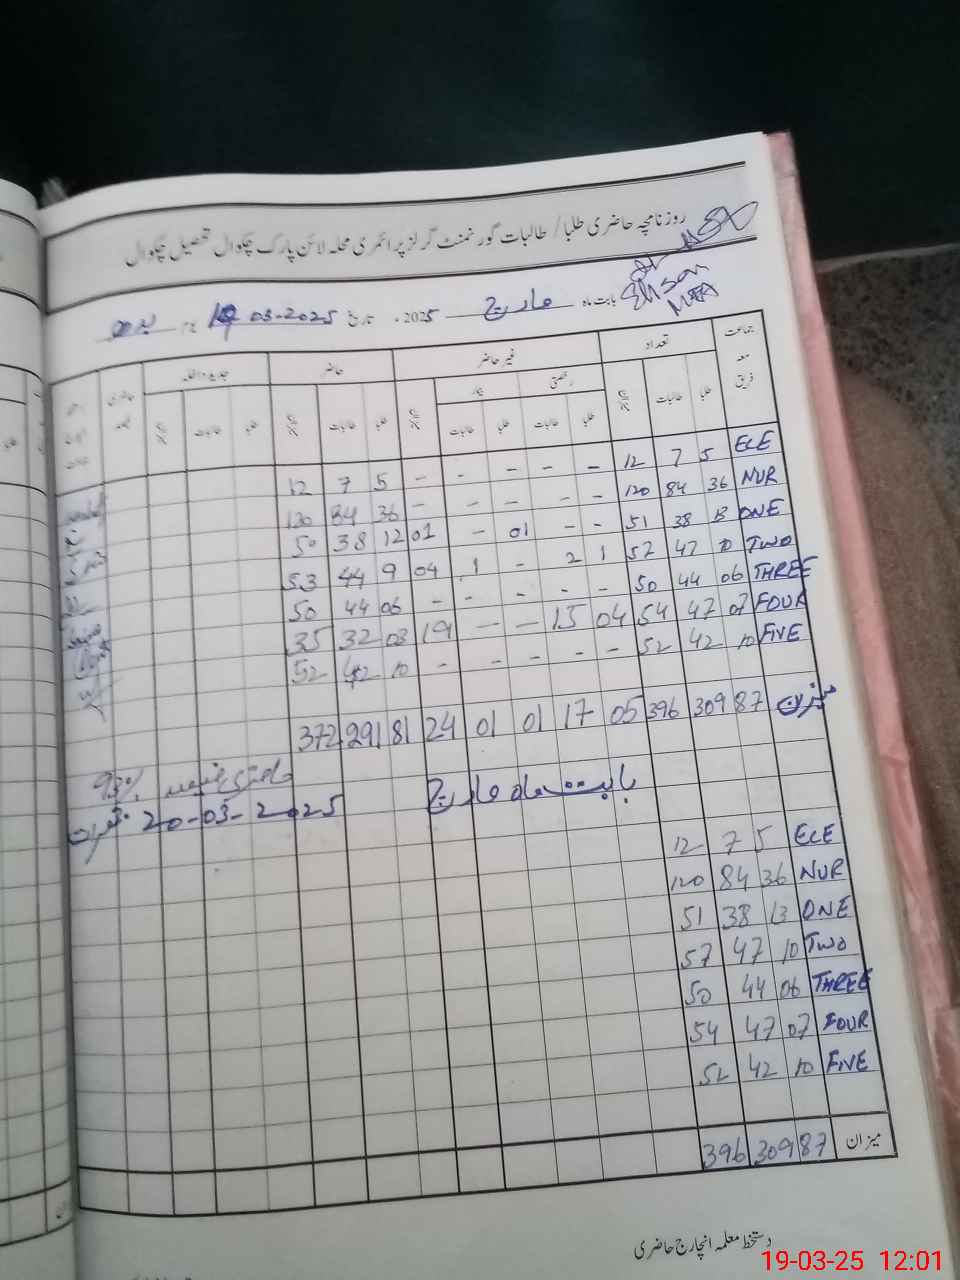 روزنامچہ حاضری طلبا/ طالبات گورنمنٹ گرلز پرائمری محلہ لائن پارک چکوال تحصیل چکوال
Ehsan
MEA
بابت ماہ مارچ 2025ء تاریخ 19-03-2025 یوم بدھ
جماعت معہ فریق تعداد غیر حاضر حاضر جدید داخلہ
رخصتی بیمار
طلبا طالبات میزان طلبا طالبات طلبا طالبات میزان طلبا طالبات میزان طلبا طالبات میزان
ECE 5 7 12 - - - - - 5 7 12
NUR 36 84 120 - - - - - 36 84 120
ONE 13 38 51 - - 01 - 01 12 38 50
TWO 10 47 57 1 2 - 1 04 9 44 53
THREE 06 44 50 - - - - - 06 44 50
FOUR 07 47 54 04 15 - - 19 03 32 35
FIVE 10 42 52 - - - - - 10 42 52
میزان 87 309 396 05 17 01 01 24 81 291 372
حاضری فیصد 93%
بابت ماہ مارچ 20-03-2025
ECE 5 7 12
NUR 36 84 120
ONE 13 38 51
TWO 10 47 57
THREE 06 44 50
FOUR 07 47 54
FIVE 10 42 52
میزان 87 309 396
دستخط معلمہ انچارج حاضری
19-03-25 12:01